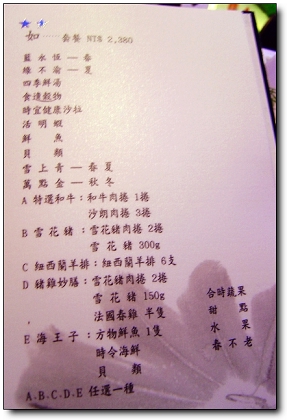 如……套餐 NT$ 2,380
藍永恆—春
緣不渝—夏
四季鮮湯
食遺穀物
時宜健康沙拉
活明蝦
鮮魚
貝類
雪上青—春夏
萬點金—秋冬
A 特選和牛:和牛肉捲 1捲
沙朗肉捲 3捲
B 雪花豬:雪花豬肉捲 2捲
雪花豬 300g
C 紐西蘭羊排:紐西蘭羊排 6支
D 豬雞妙膳:雪花豬肉捲 2捲
雪花豬 150g
法國春雞 半隻
E 海王子:方物鮮魚 1隻
時令海鮮
貝類
A.B.C.D.E 任選一種
合時蔬果
甜點
水果
春不老